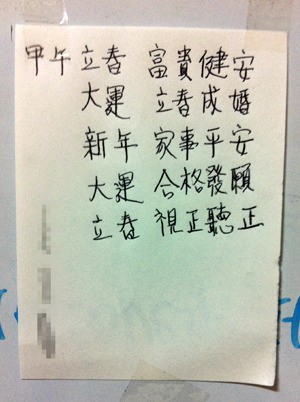 甲午立春 富貴健安
大運 立春成婚
新年 家事平安
大運 合格發願
立春 視正聽正